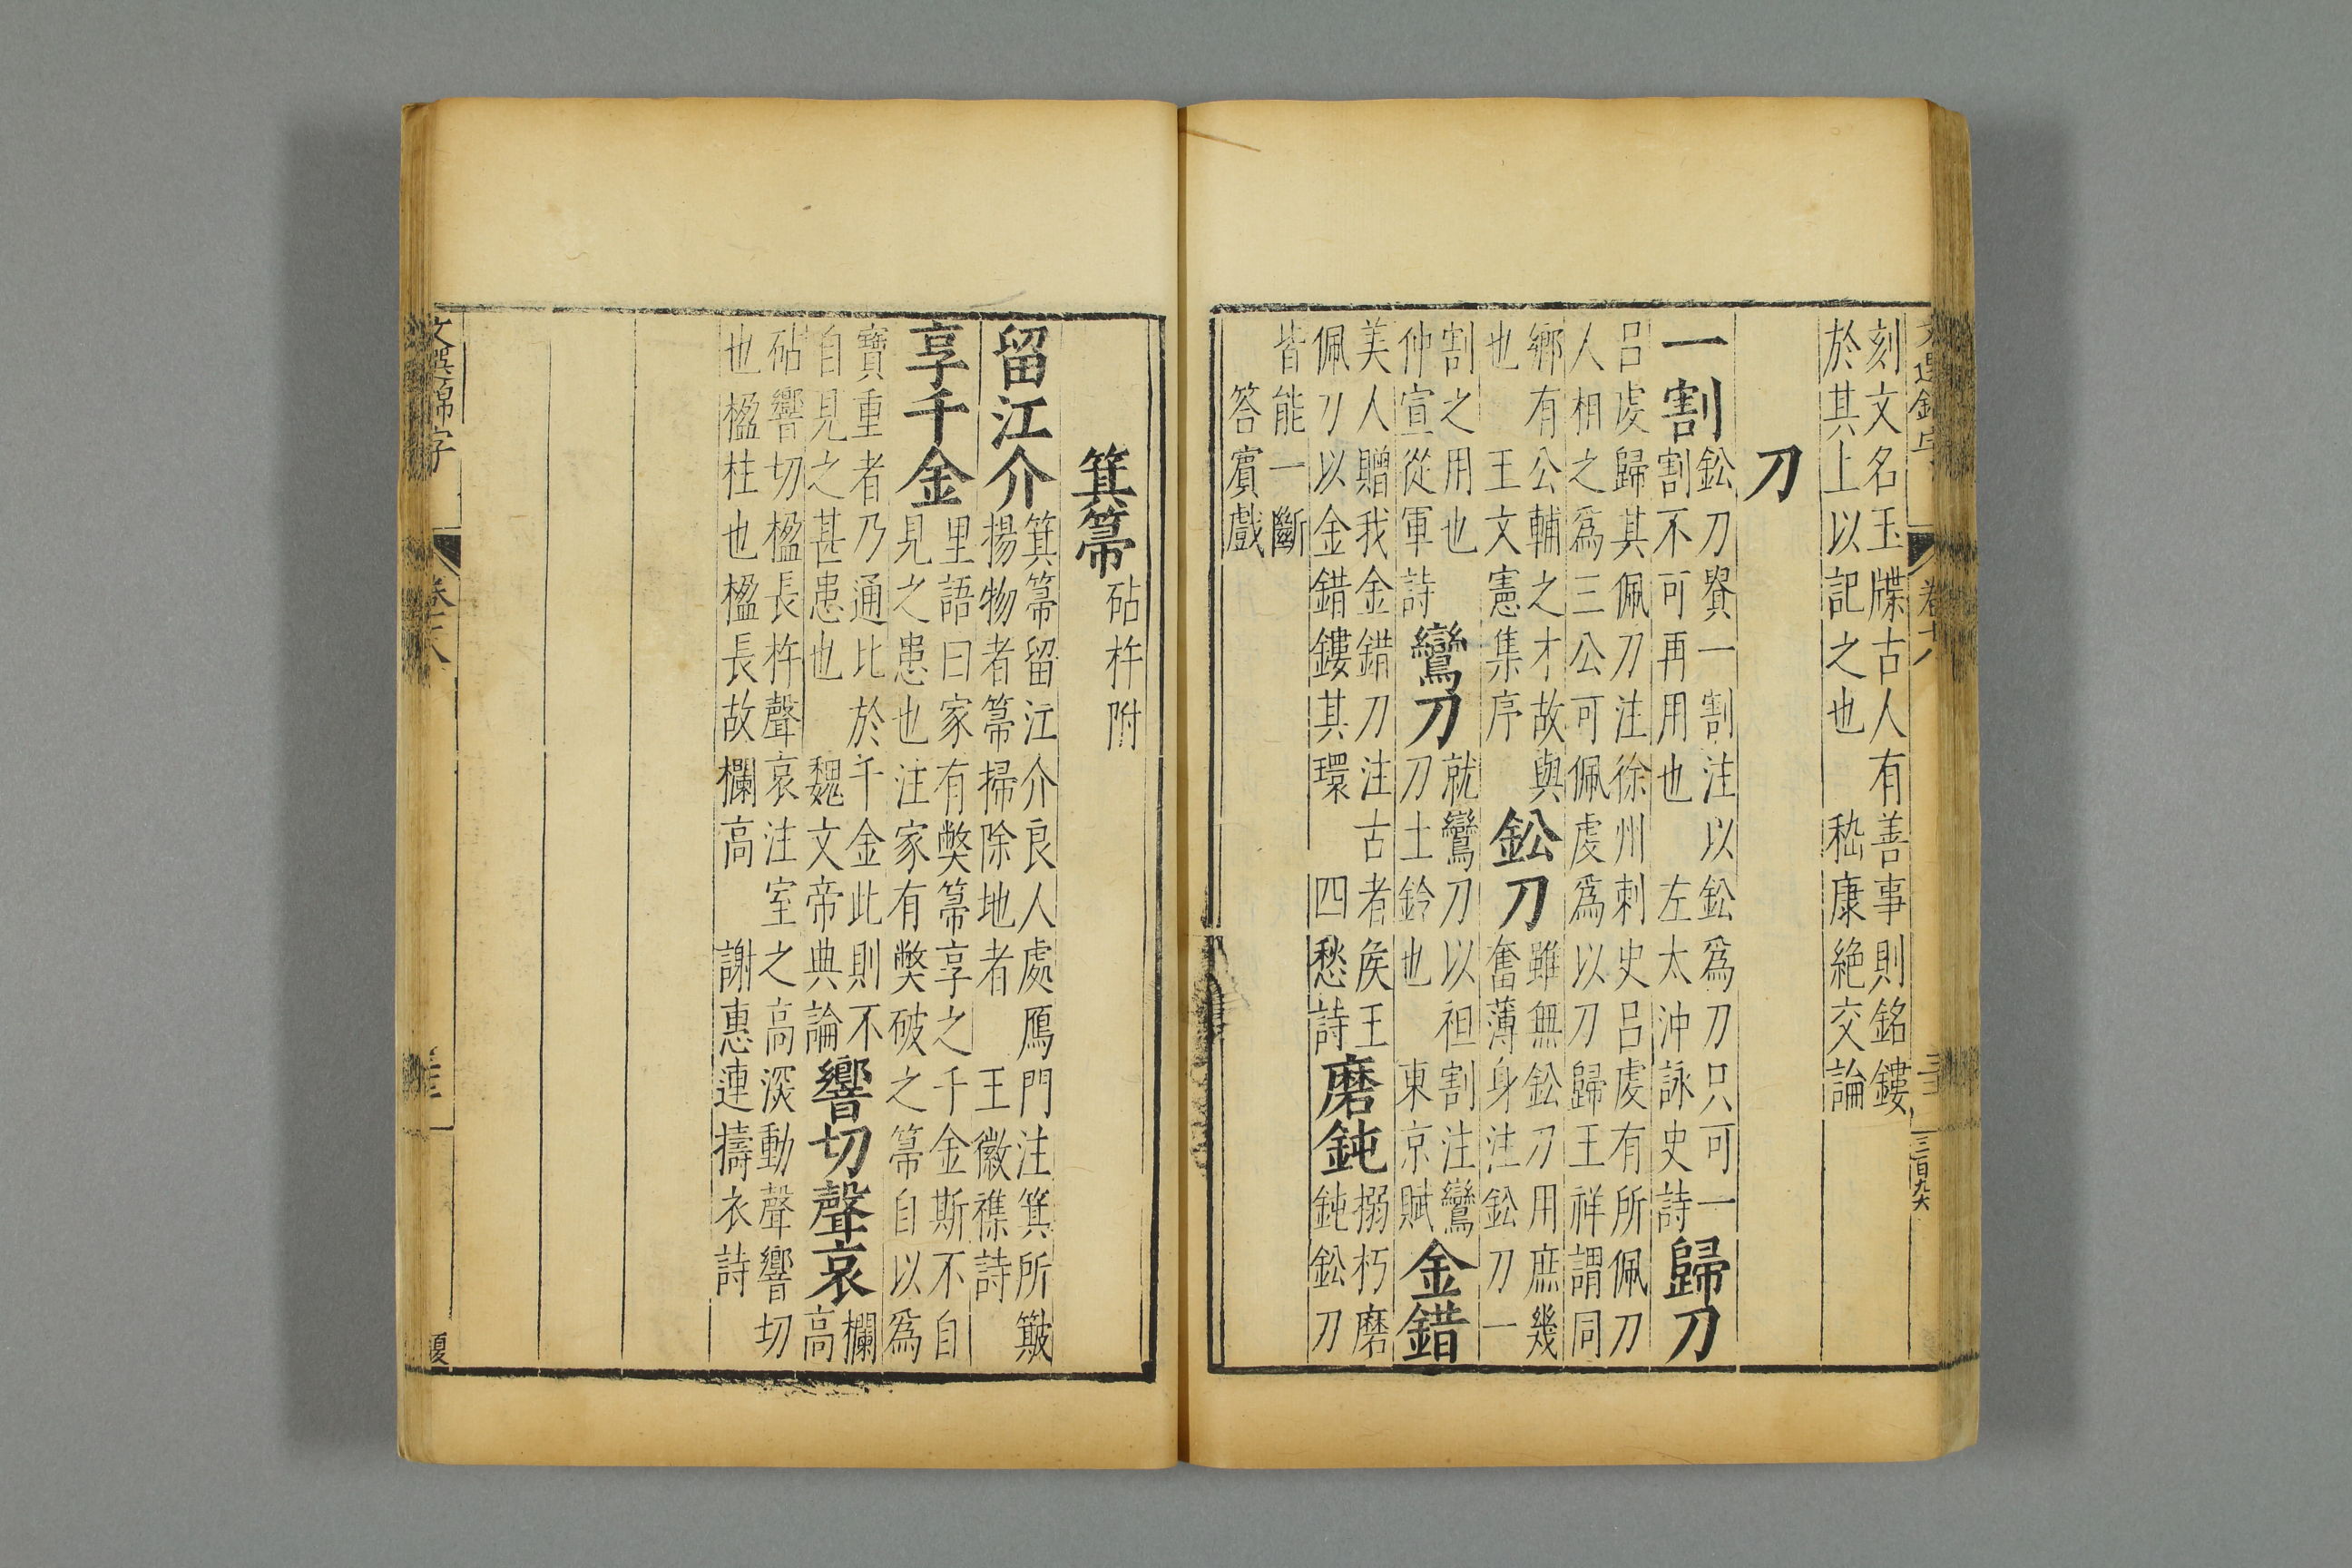 文選錦字
卷十八
三百九六
刻文名玉牒古人有善事則銘鏤
於其上以記之也 嵇康絕交論
刀
一割
鈆刀貴一割注以鈆為刀只可一
割不可再用也 左太沖詠史詩
歸刀
呂虔歸其佩刀注徐州刺史呂虔有所佩刀
人相之為三公可佩虔為以刀歸王祥謂同
鄉有公輔之才故與
也 王文憲集序
鈆刀
雖無鈆刀用庶幾
奮薄身注鈆刀一
割之用也
仲宣從軍詩
鸞刀
就鸞刀以袒割注鸞
刀土鈴也 東京賦
金錯
美人贈我金錯刀注古者矦王
佩刀以金錯鏤其環 四愁詩
磨鈍
搦朽磨
鈍鈆刀
皆能一斷
答賓戲
箕箒
砧杵附
留江介
箕箒留江介良人處鴈門注箕所簸
揚物者箒掃除地者 王徽襍詩
享千金
里語曰家有弊箒享之千金斯不自
見之患也注家有弊破之箒自以為
寶重者乃通比於千金此則不
自見之甚患也 魏文帝典論
響切聲哀
欄高
砧響切楹長杵聲哀注室之高深動聲響切
也楹柱也楹長故欄高 謝惠連擣衣詩
文選錦字